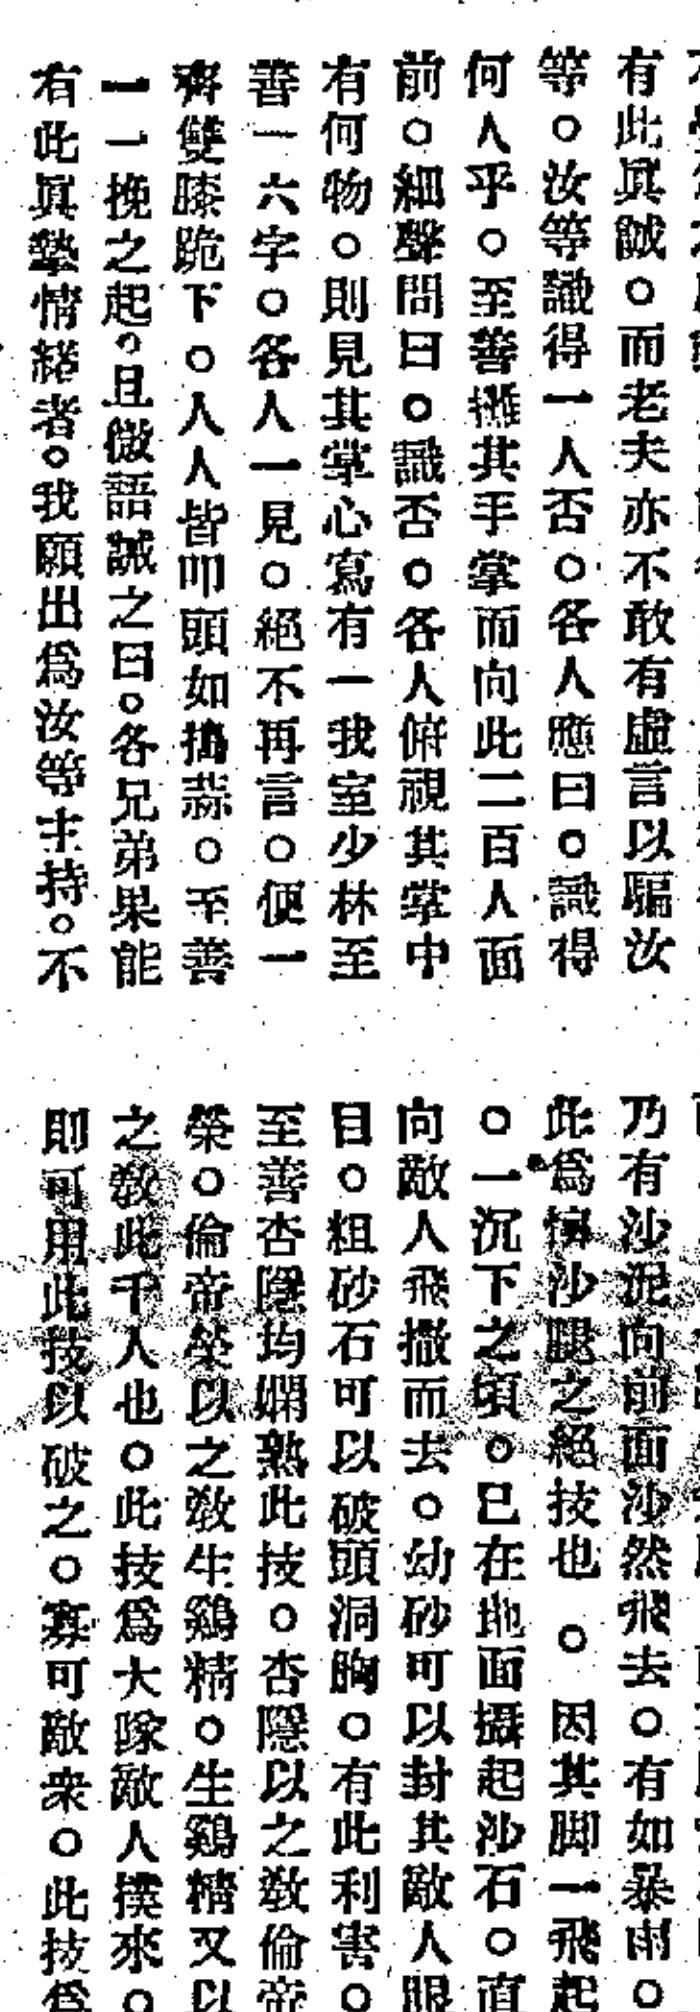 有此眞誠。而老夫亦不敢有虛言以騙汝
等。汝等識得一人否。各人應曰。識得
何人乎。至善攤其手掌而向此二百人面
前。細聲問曰。識否。各人俯視其掌中
有何物。則見其掌心寫有一我室少林至
善一六字。各人一見。絕不再言。便一
齊雙膝跪下。人人皆叩頭如搗蒜。至善
一一挽之起。且微語誡之曰。各兄弟果能
有此眞摯情緒者。我願出爲汝等主持。不
乃有沙泥向前面沙然飛去。有如暴雨。
此爲 沙 之絕技也。因其脚一飛起
。一沉下之頃。已在地面攝起沙石。直
向敵人飛撒而去。幼砂可以封其敵人眼
目。粗砂石可以破頭洞胸。有此利害。
至善杏隱均嫻熟此技。杏隱以之敎倫帝
榮。倫帝榮以之敎生鷄精。生鷄精又以
之敎此千人也。此技爲大隊敵人撲來。
則可用此技以破之。寡可敵衆。此技爲